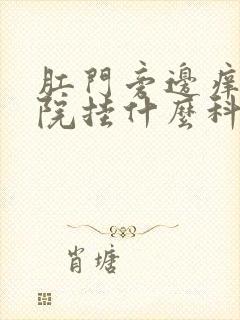 肛門旁邊痒
院挂什麼科
肖塘